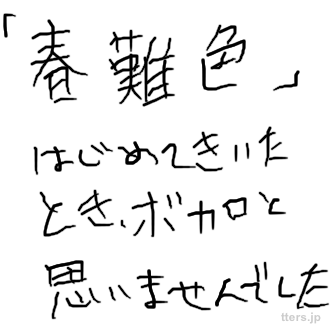 「春難色」
はじめてきいた
とき、ボカロと
思いませんでした
tters.jp